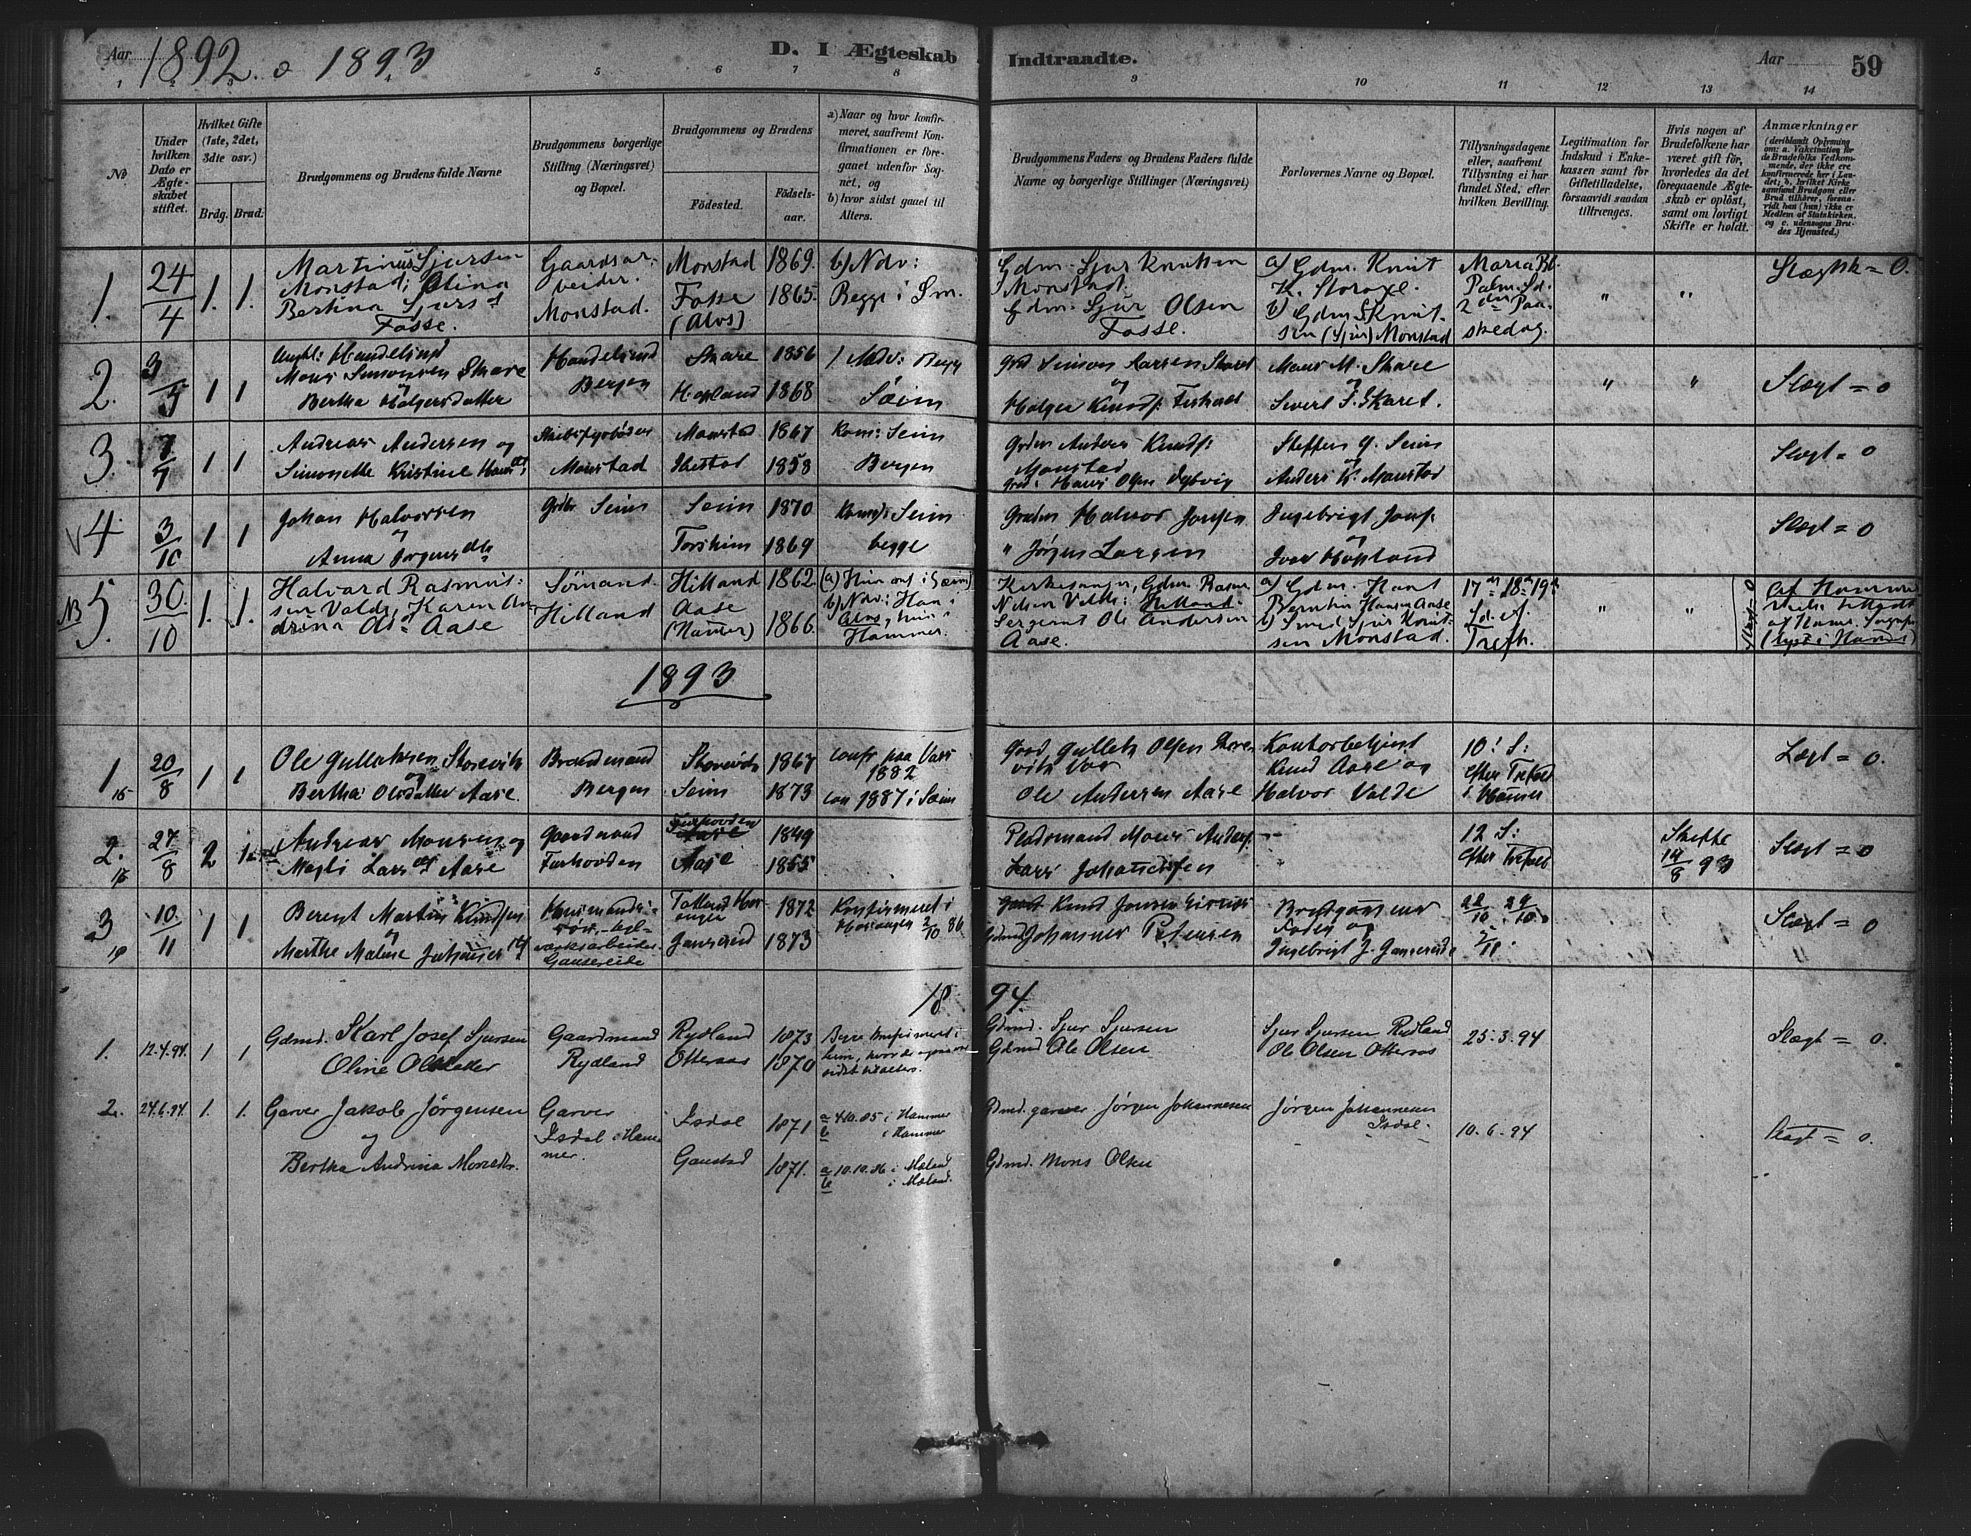 Aar 1892 o 1893
D. I Ægteskab Indtraadte.
Aar 59
1 2 3 4 5 6 7 8 9 10 11 12 13 14
No
Under hvilken Dato er Ægteskabet stiftet.
Hvilket Gifte (1ste, 2det, 3die osv.)
Brdg. Brud.
Brudgommens og Brudens fulde Navne
Brudgommens borgerlige Stilling (Næringsvei) og Bopæl.
Brudgommens og Brudens
Födested. Födselsaar.
a) Naar og hvor konfirmeret, saafremt Konfirmationen er foregaaet udenfor Sognet, og
b) hvor sidst gaaet til Alters.
Brudgommens Faders og Brudens Faders fulde Navne og borgerlige Stillinger (Næringsvei)
Forlovernes Navne og Bopæl.
Tillysningsdagene eller, saafremt Tillysning ei har fundet Sted, efter hvilken Bevilling.
Legitimation for Indskud i Enkekassen samt for Giftetilladelse, forsaavidt saadan tiltrænges.
Hvis nogen af Brudefolkene har været gift för, hvorledes da det foregaaende Ægteskab er oplöst, samt om lovligt Skifte er holdt.
Anmærkninger
1. 24/4 1. 1.
Martinus Sjursen Monstad; Olina Bertina Sjursdt Fosse.
Gaardsarbeider. Monstad.
Monstad 1869.
Fosse (Alvs) 1865.
b) Ndv: Begge i Sm.
Gdm. Sjur Knutsen Monstad.
Gdm. Sjur Olsen Fosse.
a) Gdm. Knut K. Storaxe.
b) Gdm. Knutsen (Sjur) Monstad
Maria Bb. Palm. Sd. 2den Paaskedag.
" "
Slægtsk = 0.
2. 3/5 1 1
Ungkl: Handelsmd Mons Simonsen Skare og Bertha Holgersdatter
Handelsmd Bergen
Skare 1856
Hopland 1868
Ndv: Begg Sæim
Grd Simon Larsen Skaret og Holger Knudsn
Mons M. Skare og Sivert S. Skaret.
" "
Slægt = 0
3. 7/7 1 1
Andreas Andersen og Simonette Kristine Hansdt
Skibsfyrböder Monstad
Monstad 1867
1858
Konf: Seim Bergen
Grdm Anders Knuds: Monstad
Grd: Hans Olsen Dybvig
Steffen G. Seim og Anders K. Monstad
Slægt = 0
V 4. 3/10 1 1
Johan Halvorsen og Anna Jörgensdtr
Grdbr Seim
Seim 1870
Torsheim 1869
Konf: Seim begge
Grdm Halvor Jonsen
" Jörgen Larsen
Ingebrigt Jons: og Iver Hopland
Slægt = 0
NB 5. 30/10 1. 1.
Halvard Rasmussen Valde, Karen Andrina Olsdt Aase
Sömand. Hilland
Hilland 1862.
Aase (Hamer) 1866.
(a) Hun conf i Sæim)
b) Ndv: Han i Alvs, hun i Hammer.
Kirkesanger, Gdm. Rasm. Nilsen Valde: Hilland.
Sergeant Ole Andersen Aase.
a) Gdm. Hans Berntin Hansen Aase
b) Smed Sjur Knutsen Monstad.
17de 18de 19de Sd. ef. Trefh.
" "
Slægt = 0
1893
1 15 20/8 1 1
Ole Gulleiksen Storevik og Bertha Olsdatter Aase.
Brandmand Bergen
Storevik 1867
Seim 1873
conf paa Vass 1882
con 1887 i Sæim
Gaard Gulleik Olsen Storevik Vos
Ole Andersen Aase
Kontorbetjent Knud Aase og Halvor Valde
10. S: efter Trefol i Hamer
Slægt = 0.
2. 27/8 2 1
Andreas Monsen og Magli Larsdt Aase
Gaardmand Furhovden
Furhovden 1849
Aase 1855
Pladsmand Mons Anders:
Lars Johannesen
12 S: efter Trefol
Skifte 19/8 93
Slægt = 0
3 10/11 1 1
Berent Martin Knudsen og Marthe Malene Johannesdt
Gansereide
1872
Gansereid 1873
Konfirmeret i Hosanger 2/10 86
Knud Jonsen
Gdmd Johannes Petersen
Brudgommens Fader og Ingebrigt J. Gansereide
22/10 29/10 5/11.
Slægt = 0
1894.
1. 12.4.94. 1 1
Gdmd. Karl Josef Sjursen
Oline Olsdatter
Gaardmand Rydland
Rydland 1873
Otteraas 1870
Gdmd. Sjur Sjursen
Gdmd Ole Olsen
Sjur Sjursen Rydland
Ole Olsen Otteraas
25.3.94
Slægt = 0.
2. 24.6.94. 1. 1.
Garver Jakob Jörgensen og Bertha Andrina Monsdtr.
Garver Isdal i Hammer.
Isdal 1871
Ganstad 1871.
a 4.10.85 i Hammer
b i Hammer
a 10.10.86 i Mæland
b i Mæland.
Gdmd. garver Jörgen Johannesen
Gdmd. Mons Olsen
Jörgen Johannesen Isdal.
10.6.94
Slægt = 0.